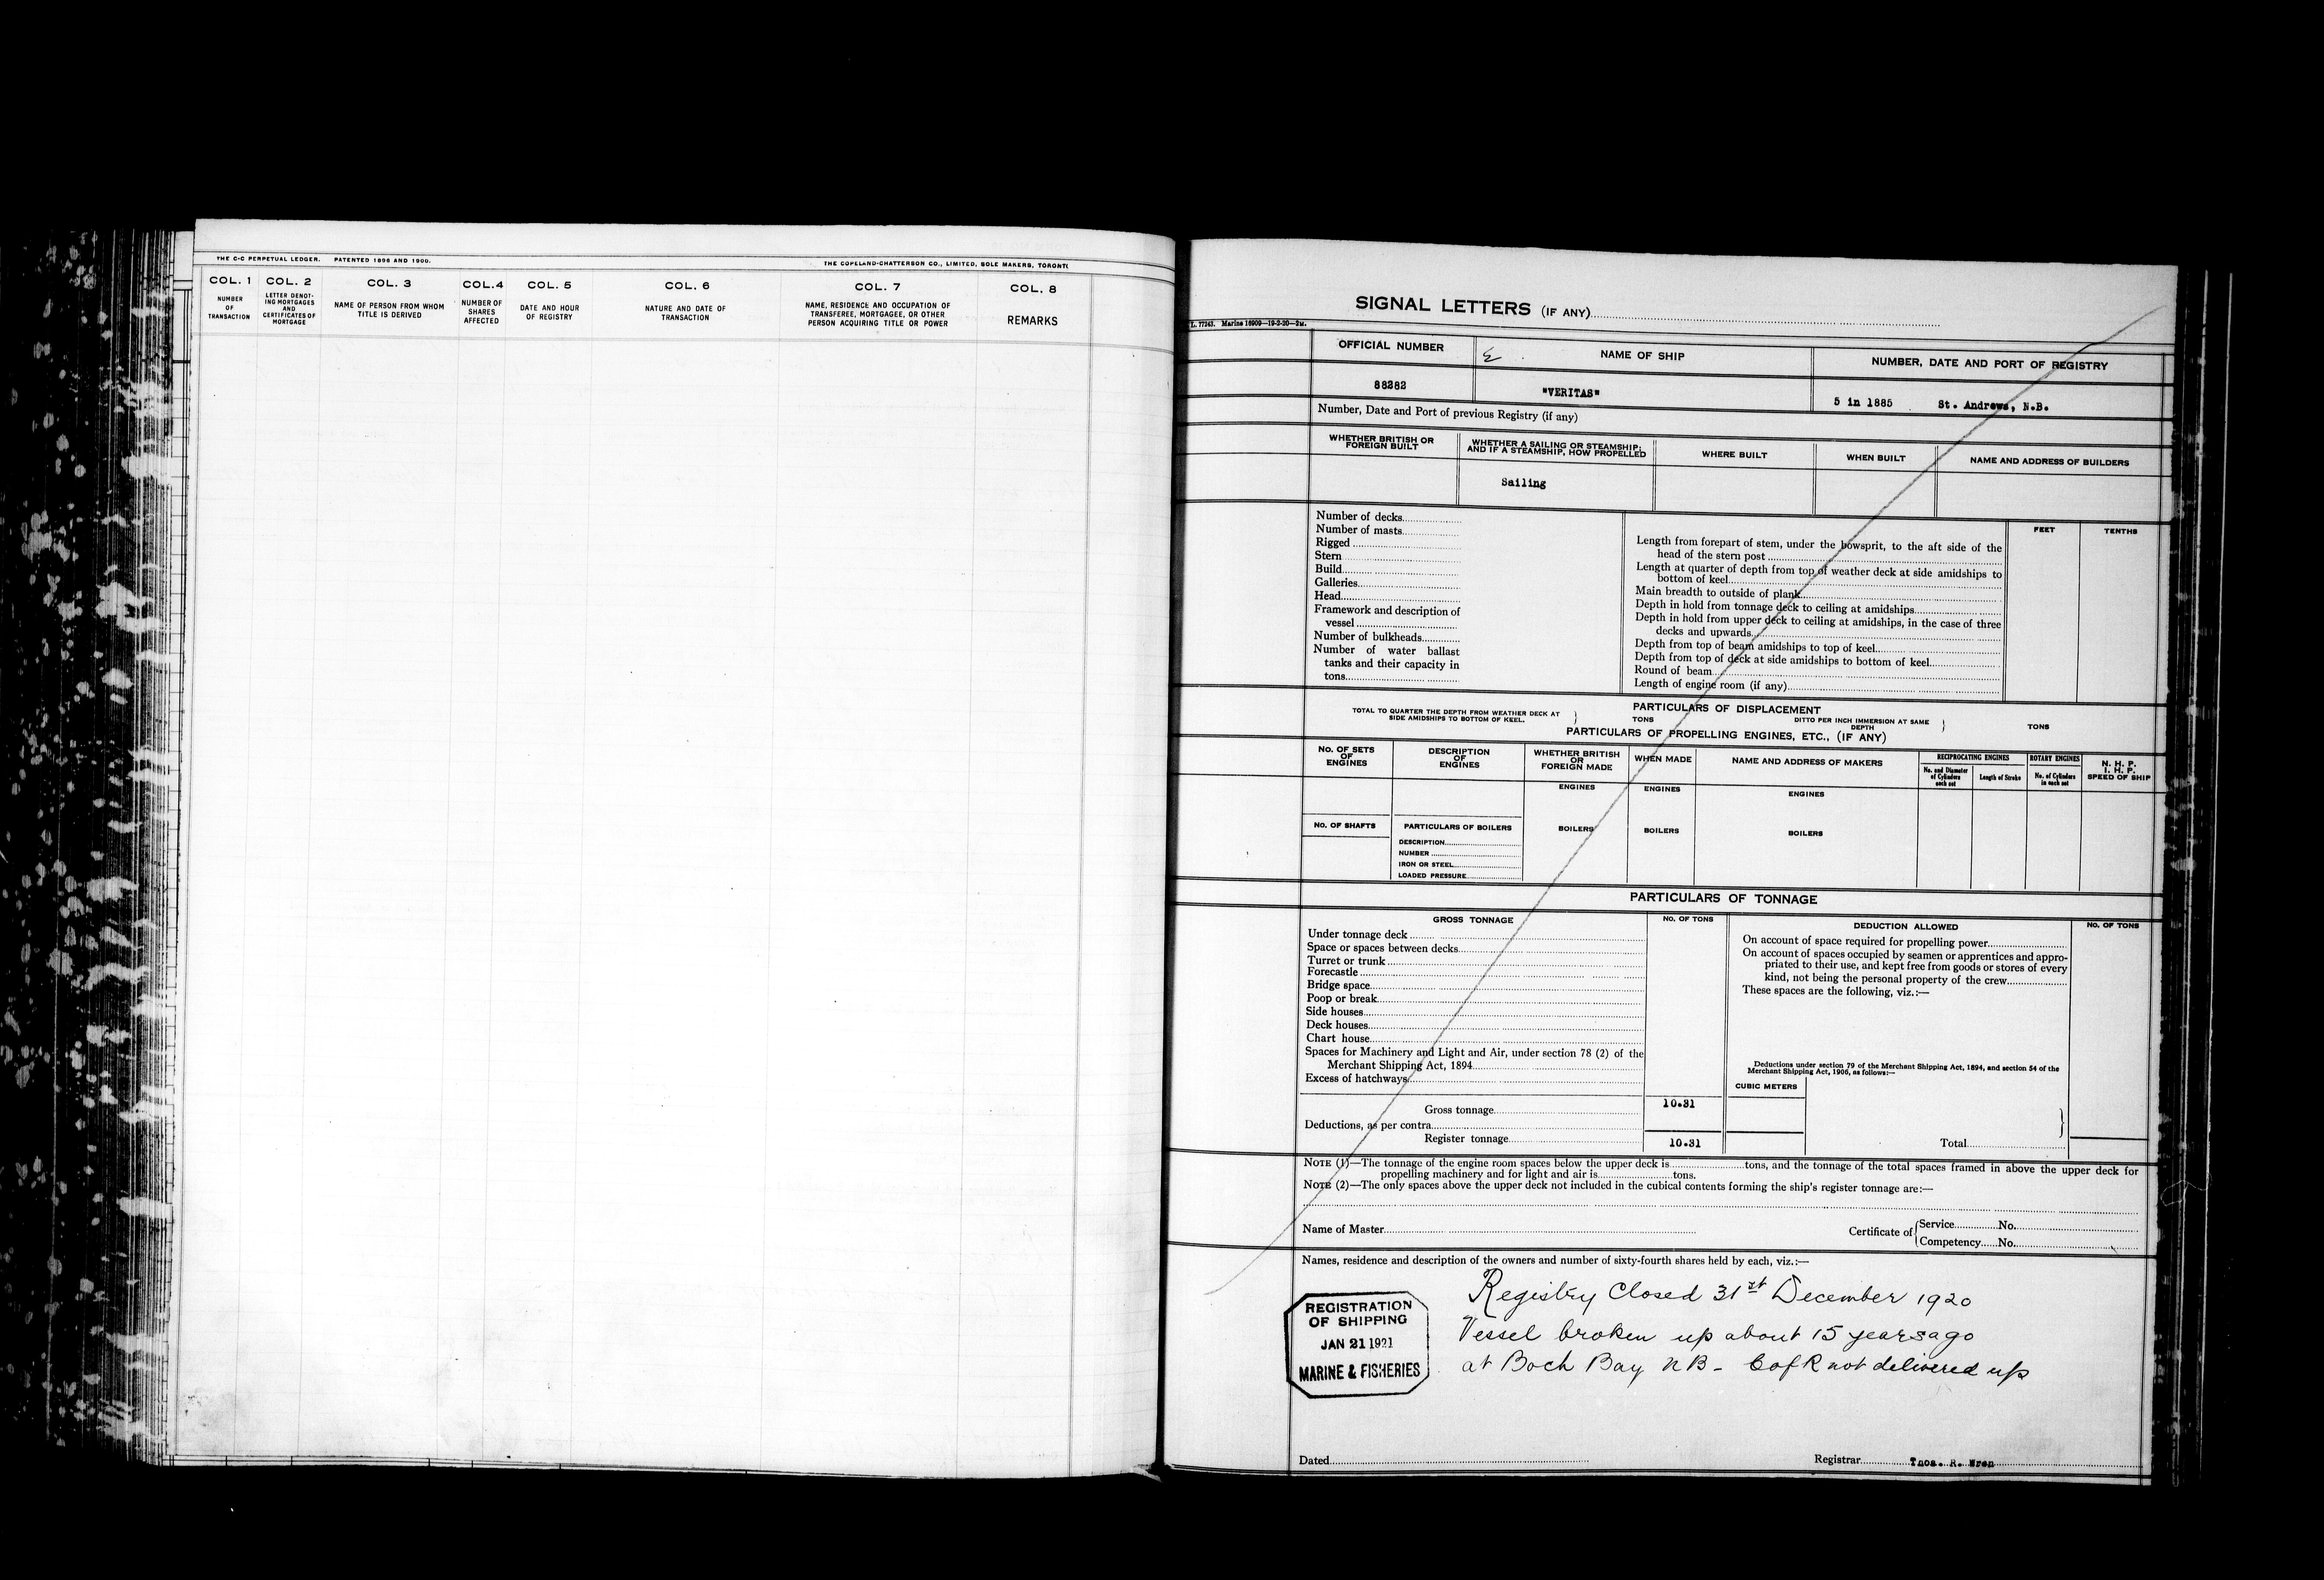 THE C-C PERPETUAL LEDGER. PATENTED 1896 AND 1900.
THE COPELAND-CHATTERSON CO., LIMITED, SOLE MAKERS, TORONTO
COL. 1
NUMBER
OF
TRANSACTION
COL. 2
LETTER DENOT-
ING MORTGAGES
AND
CERTIFICATES OF
MORTGAGE
COL. 3
NAME OF PERSON FROM WHOM
TITLE IS DERIVED
COL. 4
NUMBER OF
SHARES
AFFECTED
COL. 5
DATE AND HOUR
OF REGISTRY
COL. 6
NATURE AND DATE OF
TRANSACTION
COL. 7
NAME, RESIDENCE AND OCCUPATION OF
TRANSFEREE, MORTGAGEE, OR OTHER
PERSON ACQUIRING TITLE OR POWER
COL. 8
REMARKS
SIGNAL LETTERS (IF ANY)
L. 77243. Marine 16909—19-2-20—2M.
OFFICIAL NUMBER
NAME OF SHIP
NUMBER, DATE AND PORT OF REGISTRY
88282
"VERITAS"
5 in 1885 St. Andrews, N.B.
Number, Date and Port of previous Registry (if any)
WHETHER BRITISH OR
FOREIGN BUILT
WHETHER A SAILING OR STEAMSHIP;
AND IF A STEAMSHIP, HOW PROPELLED
WHERE BUILT
WHEN BUILT
NAME AND ADDRESS OF BUILDERS
Sailing
Number of decks
Number of masts
Rigged
Stern
Build
Galleries
Head
Framework and description of
vessel
Number of bulkheads
Number of water ballast
tanks and their capacity in
tons
FEET
TENTHS
Length from forepart of stem, under the bowsprit, to the aft side of the
head of the stern post
Length at quarter of depth from top of weather deck at side amidships to
bottom of keel
Main breadth to outside of plank
Depth in hold from tonnage deck to ceiling at amidships
Depth in hold from upper deck to ceiling at amidships, in the case of three
decks and upwards
Depth from top of beam amidships to top of keel
Depth from top of deck at side amidships to bottom of keel
Round of beam
Length of engine room (if any)
PARTICULARS OF DISPLACEMENT
TOTAL TO QUARTER THE DEPTH FROM WEATHER DECK AT
SIDE AMIDSHIPS TO BOTTOM OF KEEL.
TONS
DITTO PER INCH IMMERSION AT SAME
DEPTH
TONS
PARTICULARS OF PROPELLING ENGINES, ETC., (IF ANY)
No. OF SETS
OF
ENGINES
DESCRIPTION
OF
ENGINES
WHETHER BRITISH
OR
FOREIGN MADE
WHEN MADE
NAME AND ADDRESS OF MAKERS
RECIPROCATING ENGINES
No. and Diameter
of Cylinders
each set
Length of Stroke
ROTARY ENGINES
No. of Cylinders
in each set
N. H. P.
I. H. P.
SPEED OF SHIP
ENGINES
ENGINES
ENGINES
No. OF SHAFTS
PARTICULARS OF BOILERS
BOILERS
BOILERS
BOILERS
DESCRIPTION
NUMBER
IRON OR STEEL
LOADED PRESSURE
PARTICULARS OF TONNAGE
GROSS TONNAGE
No. OF TONS
DEDUCTION ALLOWED
No. OF TONS
Under tonnage deck
Space or spaces between decks
Turret or trunk
Forecastle
Bridge space
Poop or break
Side houses
Deck houses
Chart house
Spaces for Machinery and Light and Air, under section 78 (2) of the
Merchant Shipping Act, 1894
Excess of hatchways
Gross tonnage
10.31
Deductions, as per contra
Register tonnage
10.31
On account of space required for propelling power
On account of spaces occupied by seamen or apprentices and appro-
priated to their use, and kept free from goods or stores of every
kind, not being the personal property of the crew
These spaces are the following, viz.:—
Deductions under section 79 of the Merchant Shipping Act, 1894, and section 54 of the
Merchant Shipping Act, 1906, as follows:—
CUBIC METERS
Total
NOTE (1)—The tonnage of the engine room spaces below the upper deck is tons, and the tonnage of the total spaces framed in above the upper deck for
propelling machinery and for light and air is tons.
NOTE (2)—The only spaces above the upper deck not included in the cubical contents forming the ship's register tonnage are:—
Name of Master
Certificate of
Service No.
Competency No.
Names, residence and description of the owners and number of sixty-fourth shares held by each, viz.:—
Registry Closed 31st December 1920
Vessel broken up about 15 years ago
at Boch Bay NB - C of R not delivered up
REGISTRATION
OF SHIPPING
JAN 21 1921
MARINE & FISHERIES
Dated
Registrar Thos. R. Wren